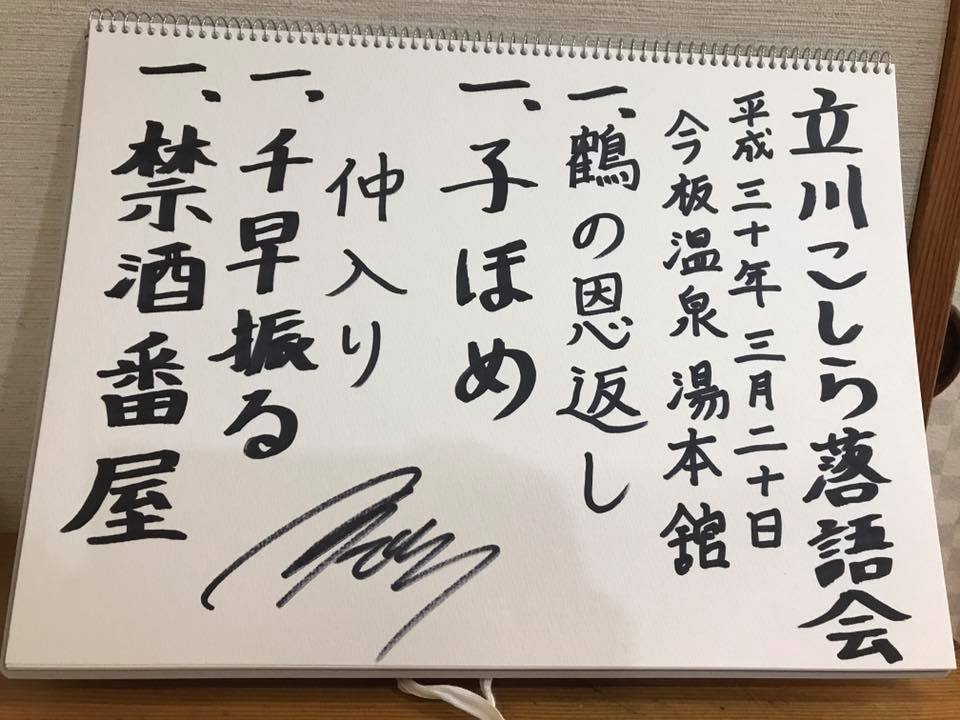 立川こしら落語会
平成三十年三月二十日
今板温泉湯本館
一、鶴の恩返し
一、子ほめ
仲入り
一、千早振る
一、禁酒番屋